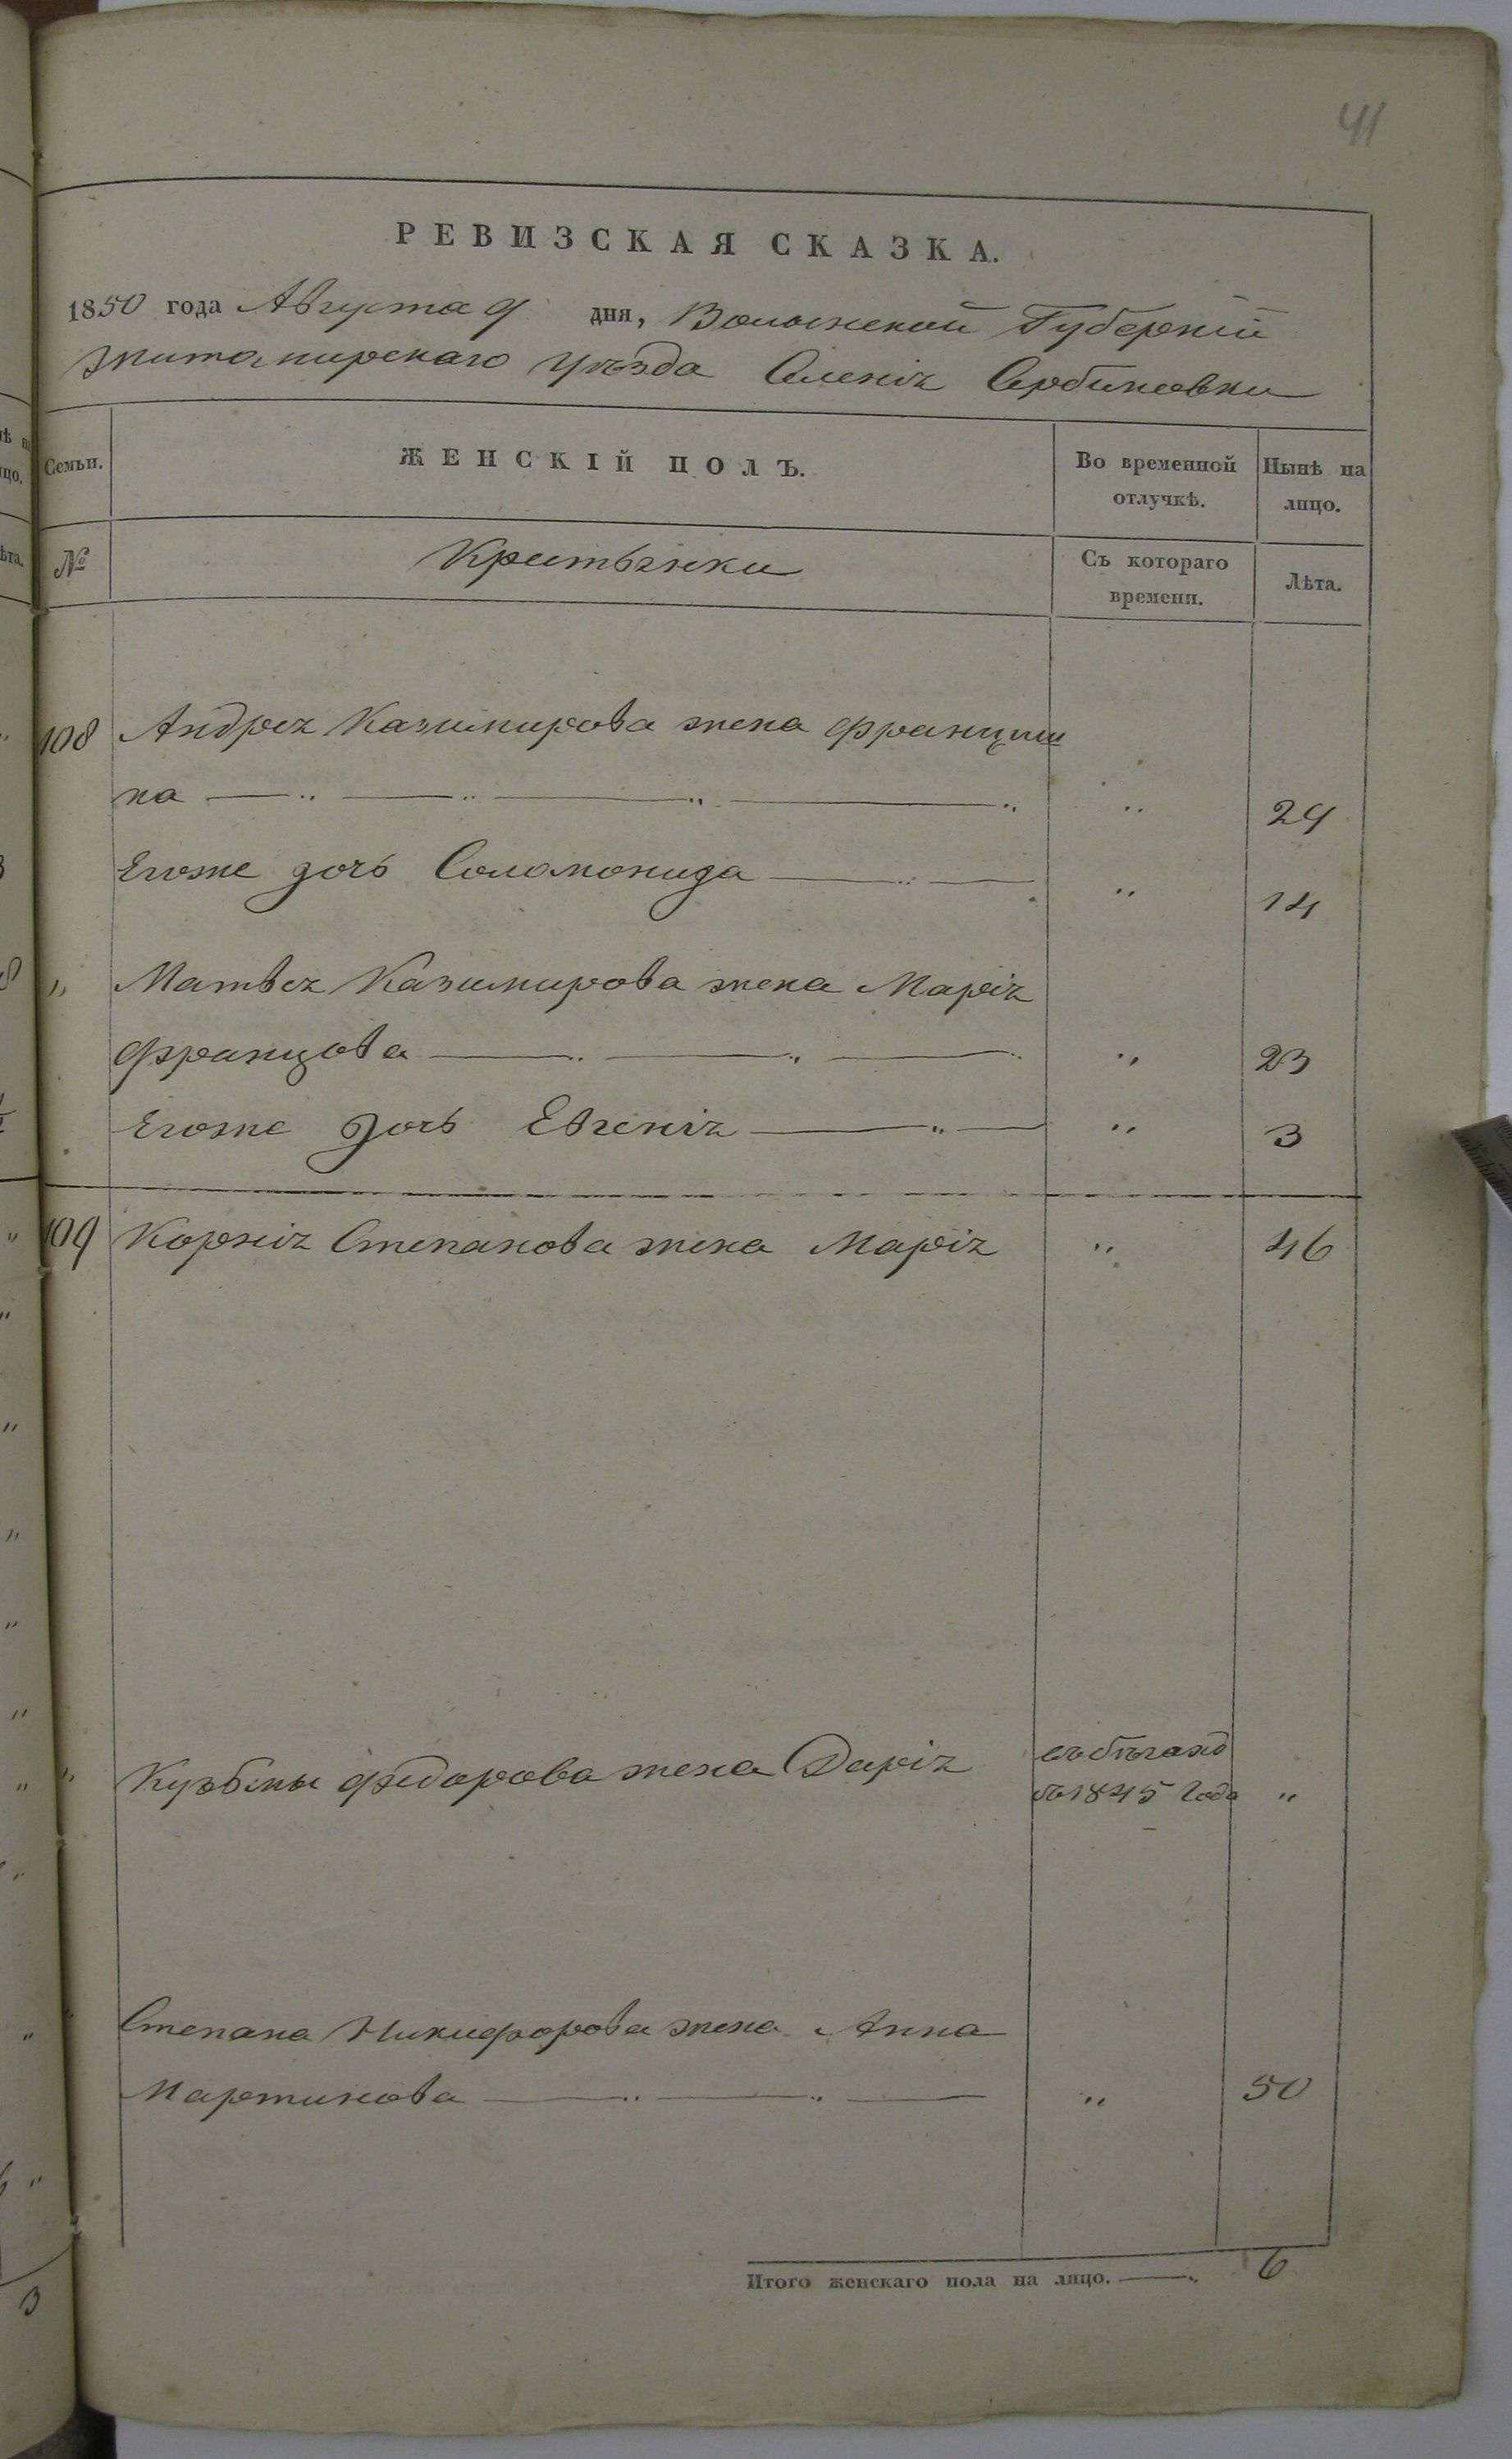 41
РЕВИЗСКАЯ СКАЗКА.
1850 года Августа 9 дня, Волынской Губерніи
Житомирскаго уѣзда Селенія Сербиновки
Семьи. ЖЕНСКІЙ ПОЛЪ. Во временной отлучкѣ. Нынѣ на лицо.
№ Крестьянки Съ котораго времени. Лѣта.
108 Андрея Казимирова жена Франциш
ка — „ — „ — „ — „ „ 29
Егоже дочь Соломонида — „ — „ 14
„ Матвея Казимирова жена Марія
Францова — „ — „ — „ „ 23
Егоже дочь Евгенія — „ — „ 3
109 Корнія Степанова жена Марія „ 46
„ Кузьмы Федорова жена Дарія въ бѣгахъ
съ 1845 года „
„ Степана Никифорова жена Анна
Мартинова — „ — „ — „ 50
Итого женскаго пола на лицо. — „ 6
3